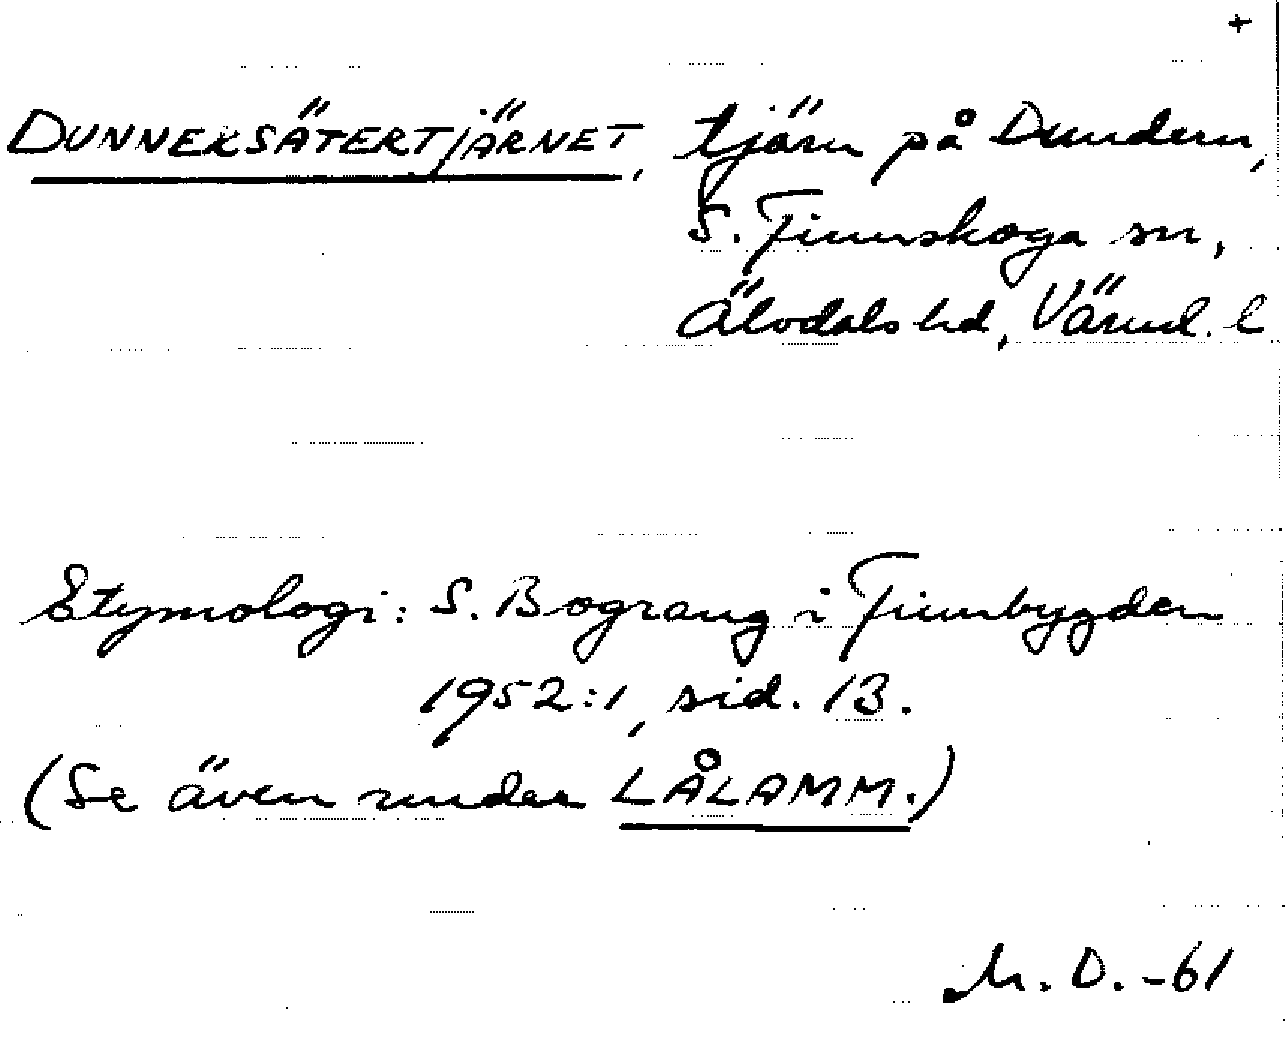 +
DUNNEKSÄTERTJÄRNET, tjärn på Dundern,
S. Finnskoga sn,
Älvdals hd, Värml. l
Etymologi: S. Bograng i Finnbygden
1952:1, sid. 13.
(Se även under LÅLAMM.)
M. D. -61